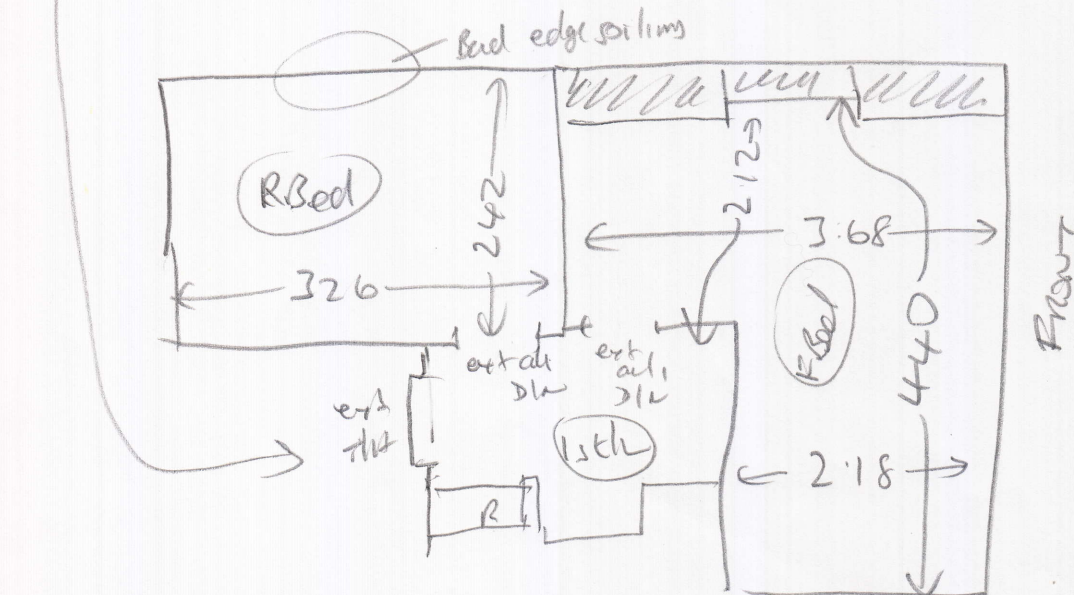 Bad edge soiling
RBed
242
326
2.12
3.68
FBed
440
FRONT
ext
ext alt
D/N
ext
D/N
1st L
2.18
R